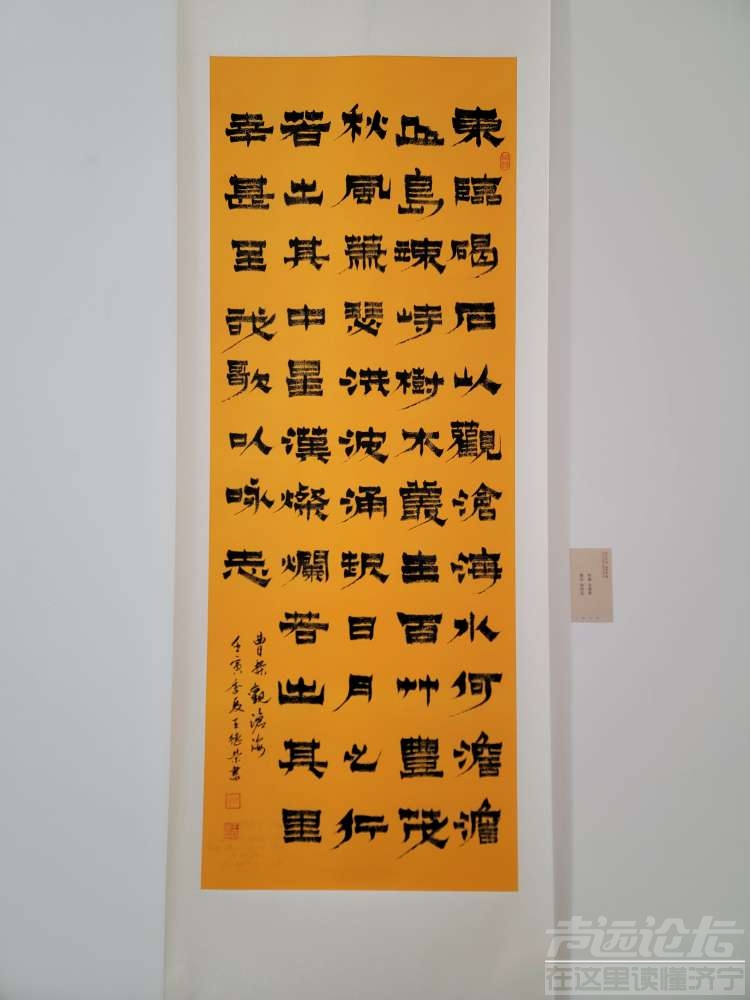 東臨碣石以觀滄海水何澹澹
山島竦峙樹木叢生百艸豐茂
秋風蕭瑟洪波涌起日月之行
若出其中星漢燦爛若出其里
幸甚至哉歌以咏志
曹操觀滄海
壬寅季夏王
声远论坛
在这里读懂济宁